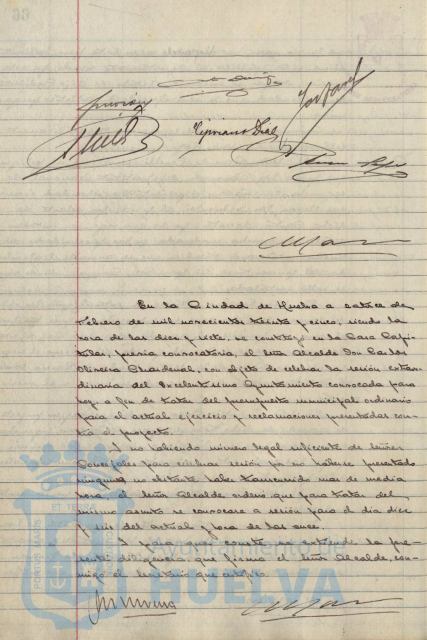 Cipriano Díaz
En la Ciudad de Huelva a catorce de
Febrero de mil novecientos treinta y cinco, siendo la
hora de las diez y siete, se constituyó en la Casa Capi-
tular, previa convocatoria, el señor Alcalde Don Carlos
Oliveira Chardenal, con objeto de celebrar la sesión extraor-
dinaria del Excelentísimo Ayuntamiento convocada para
hoy, a fin de tratar del presupuesto municipal ordinario
para el actual ejercicio y reclamaciones presentadas con-
tra el proyecto.
Y no habiendo número legal suficiente de señores
Concejales para celebrar sesión por no haberse presentado
ninguno, no obstante haber transcurrido mas de media
hora, el señor Alcalde ordenó que para tratar del
mismo asunto se convocase a sesión para el día diez
y seis del actual y hora de las once.
Y para que conste se extiende la pre-
sente diligencia, que firma el señor Alcalde, con-
migo el Secretario que certifico.
Ayuntamiento de
HUELVA
PORTUS MARIS